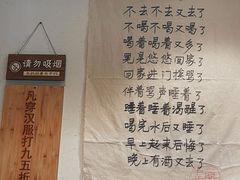 请勿吸烟
凡穿汉服打九五折
不去不去又去了
不喝不喝又喝了
喝着喝着又多了
晃晃悠悠回家了
回家进门挨骂了
伴着骂声睡着了
睡着睡着渴醒了
喝完水后又睡了
早上起来后悔了
晚上有酒又去了